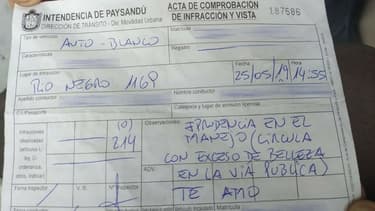 INTENDENCIA DE PAYSANDÚ
DIRECCIÓN DE TRÁNSITO - Div. Movilidad Urbana
ACTA DE COMPROBACIÓN
DE INFRACCIÓN Y VISTA
187586
Tipo de vehículo
AUTO - BLANCO
Matrícula
Características
Registro
Lugar de infracción
RIO NEGRO 1169
25/05/19 14:55
Apellido conductor
Categoría y lugar de emisión licencia
Infracciones
(0)
214
Observaciones:
IPRUDENCIA EN EL
MANEJO (CIRCULA
CON EXCESO DE BELLEZA
EN LA VIA PUBLICA)
TE AMO
ADV:
Firma Inspector
V. B.
Nº Inspector